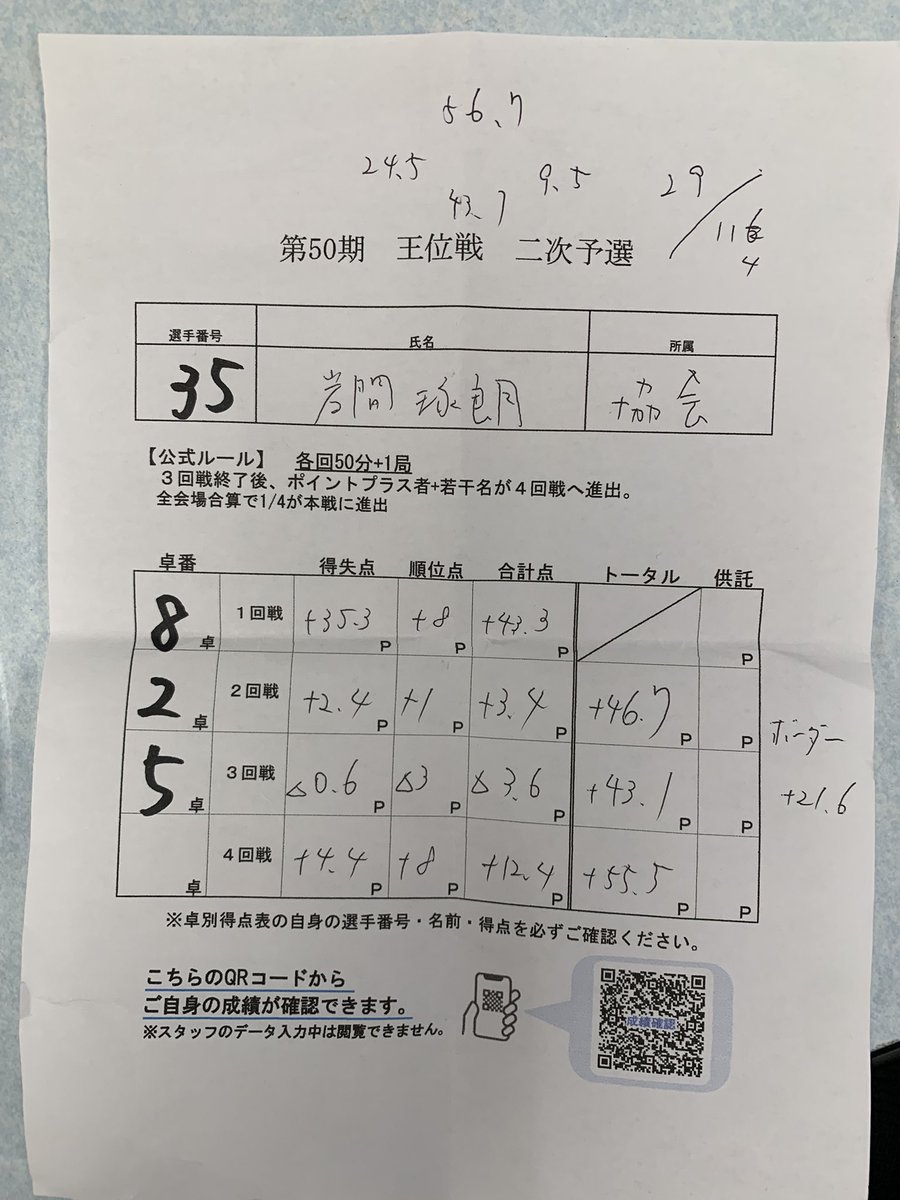 56.7
24.5 9.5 29
43.7 11
4
第50期 王位戦 二次予選
選手番号 氏名 所属
35 岩間 琢朗 協会
【公式ルール】 各回50分+1局
3回戦終了後、ポイントプラス者+若干名が4回戦へ進出。
全会場合算で1/4が本戦に進出
卓番 得失点 順位点 合計点 トータル 供託
8卓 1回戦 +35.3P +8P +43.3P P
2卓 2回戦 +2.4P +1P +3.4P +46.7P P
5卓 3回戦 △0.6P △3P △3.6P +43.1P P
卓 4回戦 +4.4P +8P +12.4P +55.5P P
ボーダー
+21.6
※卓別得点表の自身の選手番号・名前・得点を必ずご確認ください。
こちらのQRコードから
ご自身の成績が確認できます。
※スタッフのデータ入力中は閲覧できません。
成績確認